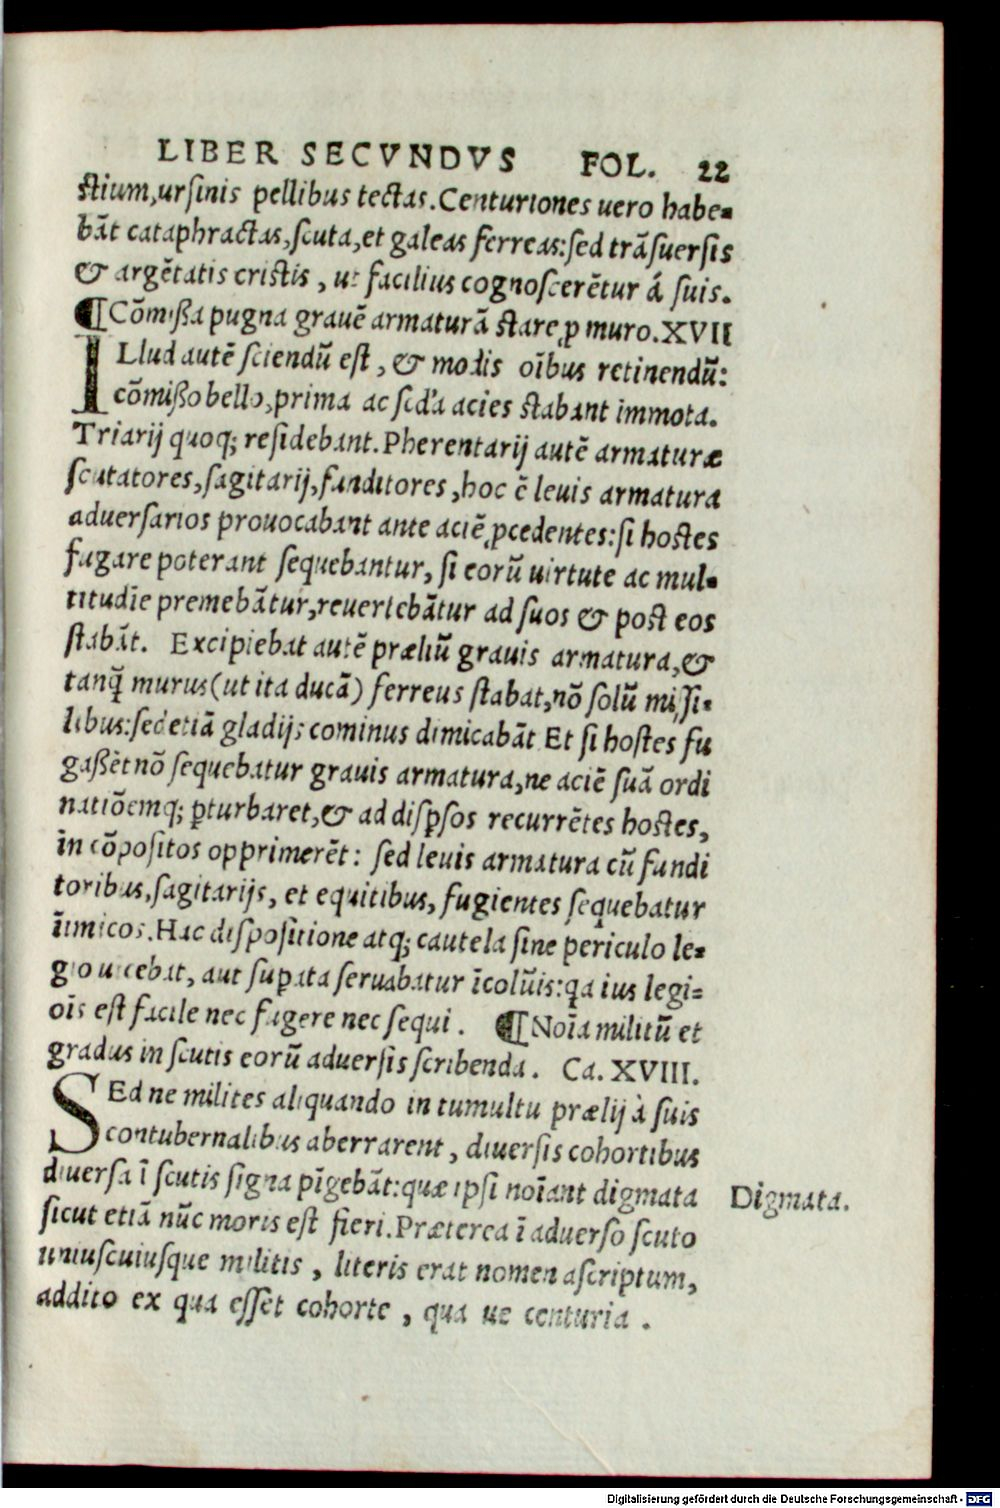 LIBER SECVNDVS FOL. 22
ſtium,urſinis pellibus tectas.Centuriones uero habe-
bāt cataphractas,ſcuta,et galeas ferreas:ſed trāſuerſis
& argētatis criſtis , ut facilius cognoſcerētur á ſuis.
¶Cōmißa pugna grauē armaturā ſtare ꝓ muro.XVII
ILlud autē ſciendū eſt , & modis oībus retinendū:
cōmißo bello,prima ac ſcd'a acies ſtabant immota.
Triarij quoq; reſidebant.Pherentarij autē armaturæ
ſcutatores,ſagitarij,funditores ,hoc ē leuis armatura
aduerſarios prouocabant ante aciē ꝓcedentes:ſi hoſtes
fugare poterant ſequebantur, ſi eorū uirtute ac mul-
titudīe premebātur,reuertebātur ad ſuos & poſt eos
ſtabāt. Excipiebat autē præliū grauis armatura,&
tanq̃ murus(ut ita ducā) ferreus ſtabat,nō ſolū miſſi-
libus:ſed etiā gladijs cominus dimicabāt Et ſi hoſtes fu
gaßēt nō ſequebatur grauis armatura,ne aciē ſuā ordi
natiōemq; ꝑturbaret,& ad diſꝑſos recurrētes hoſtes,
in cōpoſitos opprimerēt: ſed leuis armatura cū fundi
toribus,ſagitarijs, et equitibus, fugientes ſequebatur
īimicos.Hac diſpoſitione atq; cautela ſine periculo le-
gio uincebat, aut ſuꝑata ſeruabatur īcolūis:qa ius legi-
oīs eſt facile nec fugere nec ſequi . ¶Noīa militū et
gradus in ſcutis eorū aduerſis ſcribenda . Ca. XVIII.
SEd ne milites aliquando in tumultu prælij à ſuis
contubernalibus aberrarent , diuerſis cohortibus
diuerſa ī ſcutis ſigna pīgebāt:quæ ipſi noīant digmata
Digmata.
ſicut etiā nūc moris eſt fieri.Præterea ī aduerſo ſcuto
uniuſcuiuſque militis , literis erat nomen aſcriptum,
addito ex qua eſſet cohorte , qua ue centuria .
Digitalisierung gefördert durch die Deutsche Forschungsgemeinschaft - DFG